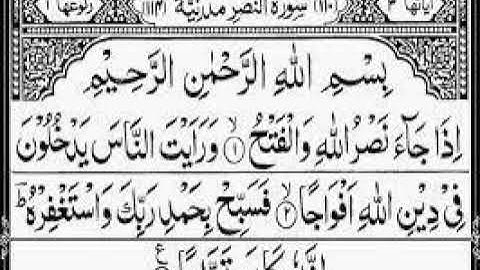 اٰیاتها ٣ (١١٠) سُوْرَةُ النَّصْرِ مَدَنِيَّةٌ (١١٤) رکوعها ١
بِسْمِ اللهِ الرَّحْمٰنِ الرَّحِيْمِ
اِذَا جَآءَ نَصْرُ اللهِ وَالْفَتْحُ ۙ﴿١﴾ وَرَاَيْتَ النَّاسَ يَدْخُلُوْنَ
فِيْ دِيْنِ اللهِ اَفْوَاجًا ۙ﴿٢﴾ فَسَبِّحْ بِحَمْدِ رَبِّكَ وَاسْتَغْفِرْهُ ؕ